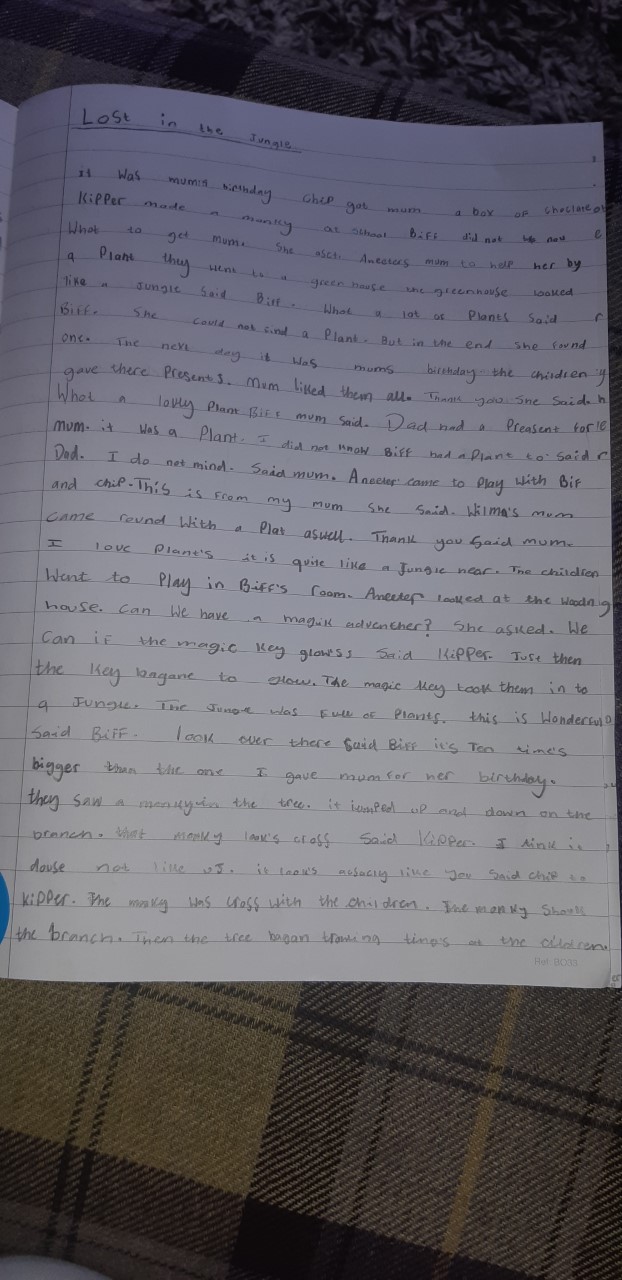 Lost in the Jungle
it was mumin birthday chip got mum a box of
Kipper made a manky at school Biff did not
What to get mum. She asct Aneeters mum to help her by
a Plant they went to a green house the greenhouse looked
like a Jungle Said Biff. What a lot of Plants Said
Biff. She could not find a Plant. But in the end she found
one. The next day it was mums birthday the children
gave there Presents. Mum liked them all. Thank you She Said.
What a lovly Plant Biff mum Said. Dad had a Preasent for
mum. it was a Plant. I did not know Biff had a Plant to. Said
Dad. I do not mind. Said mum. Aneeter came to Play with Bif
and chip. This is from my mum she said. Wilma's mum
came round With a Plat aswell. Thank you Said mum.
I love Plant's it is quite like a Jungle near. The children
Went to Play in Biff's room. Aneeter looked at the
house. Can We have a magik adventher? She asked. We
Can if the magic key glowss Said Kipper. Just then
the Key bagane to Glow. The magic Key took them in to
a Jungle. The Jungle was Full of Plants. this is Wonderful
Said Biff. look over there Said Biff it's Ten time's
bigger than the one I gave mum for her birthday.
they saw a monkuy in the tree. it jumped up and down on the
branch. that monky look's cross Said Kipper. I
douse not like us. it look's like you Said chip to
Kipper. The manky was cross with the children. The manky Shook
the branch. Then the tree bagan trowing at the children.